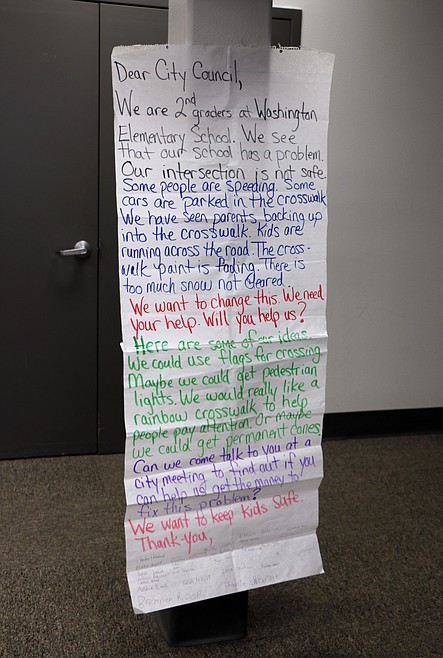 Dear City Council,
We are 2nd graders at Washington
Elementary School. We see
that our school has a problem.
Our intersection is not safe.
Some people are speeding. Some
cars are parked in the crosswalk
We have seen parents backing up
into the crosswalk. Kids are
running across the road. The cross-
walk paint is fading. There is
too much snow not cleared.
We want to change this. We need
your help. Will you help us?
Here are some of our ideas.
We could use flags for crossing
Maybe we could get pedestrian
lights. We would really like a
rainbow crosswalk to help
people pay attention. Or maybe
we could get permanent cones
Can we come talk to you at a
city meeting to find out if you
can help us get the money to
fix this problem?
We want to keep kids safe.
Thank-you,